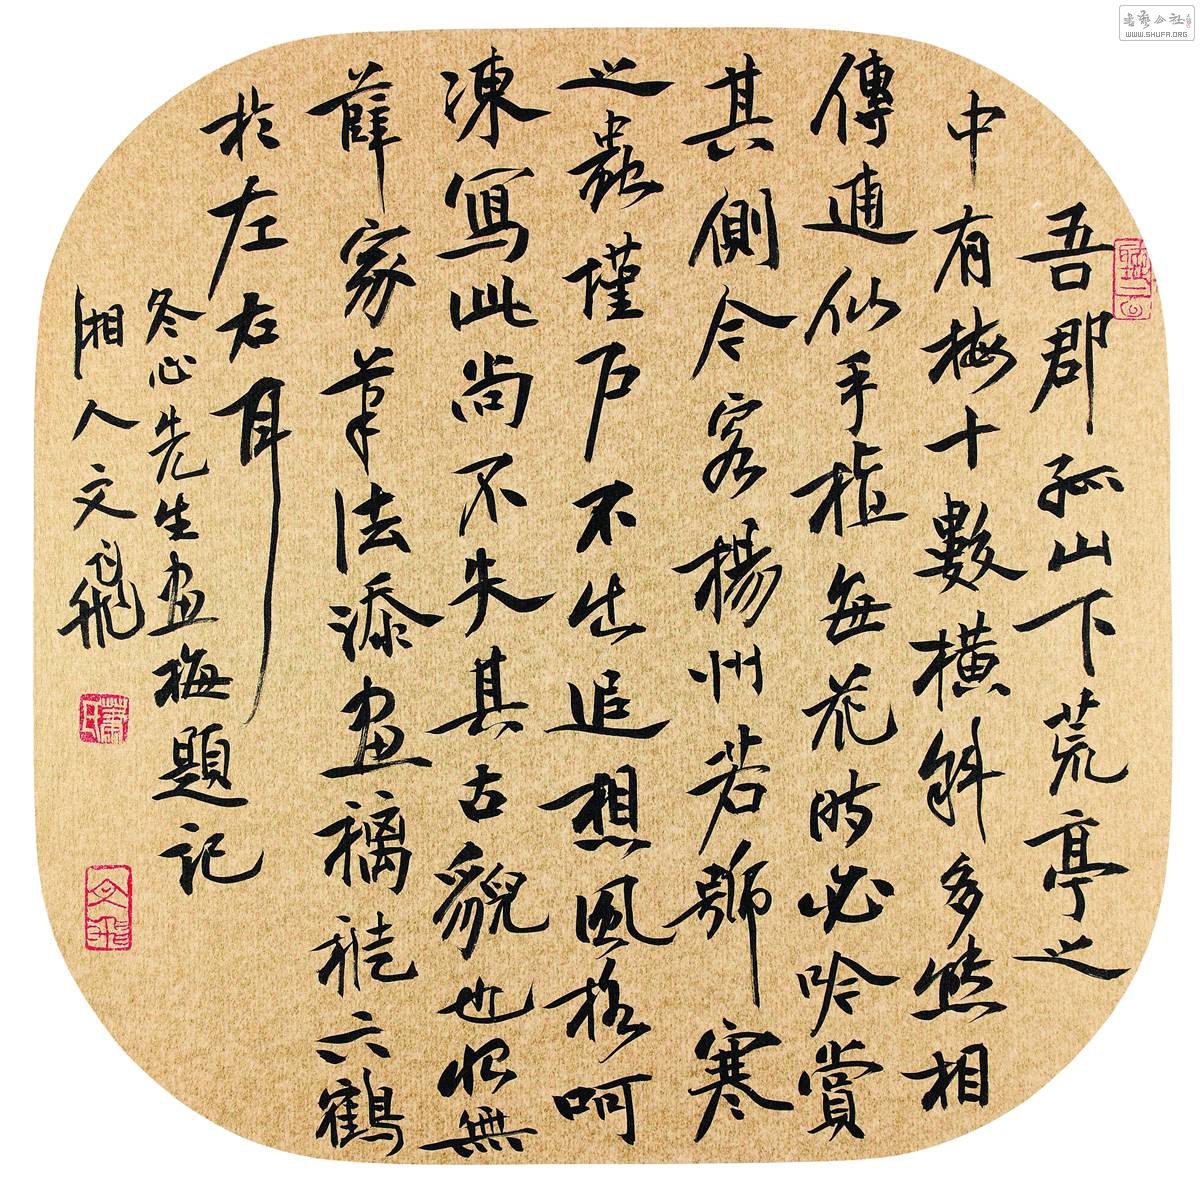 吾郡孤山下荒亭之
中有梅十數橫斜多態相
傳逋仙手植每花時必吟賞
其側今客揚州若號寒
之蟲墐戶不出追想風格呵
凍寫此尚不失其古貌也恨無
薛家筆法添畫褵褷六鶴
於左右耳
冬心先生畫梅題記
湘人文飛
文飛
書藝公社
WWW.SHUFA.ORG